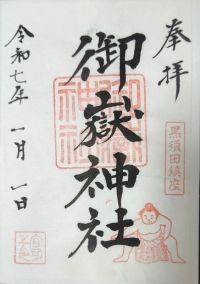 奉拝
黒須田鎮座
御嶽神社
令和七年 一月 一日